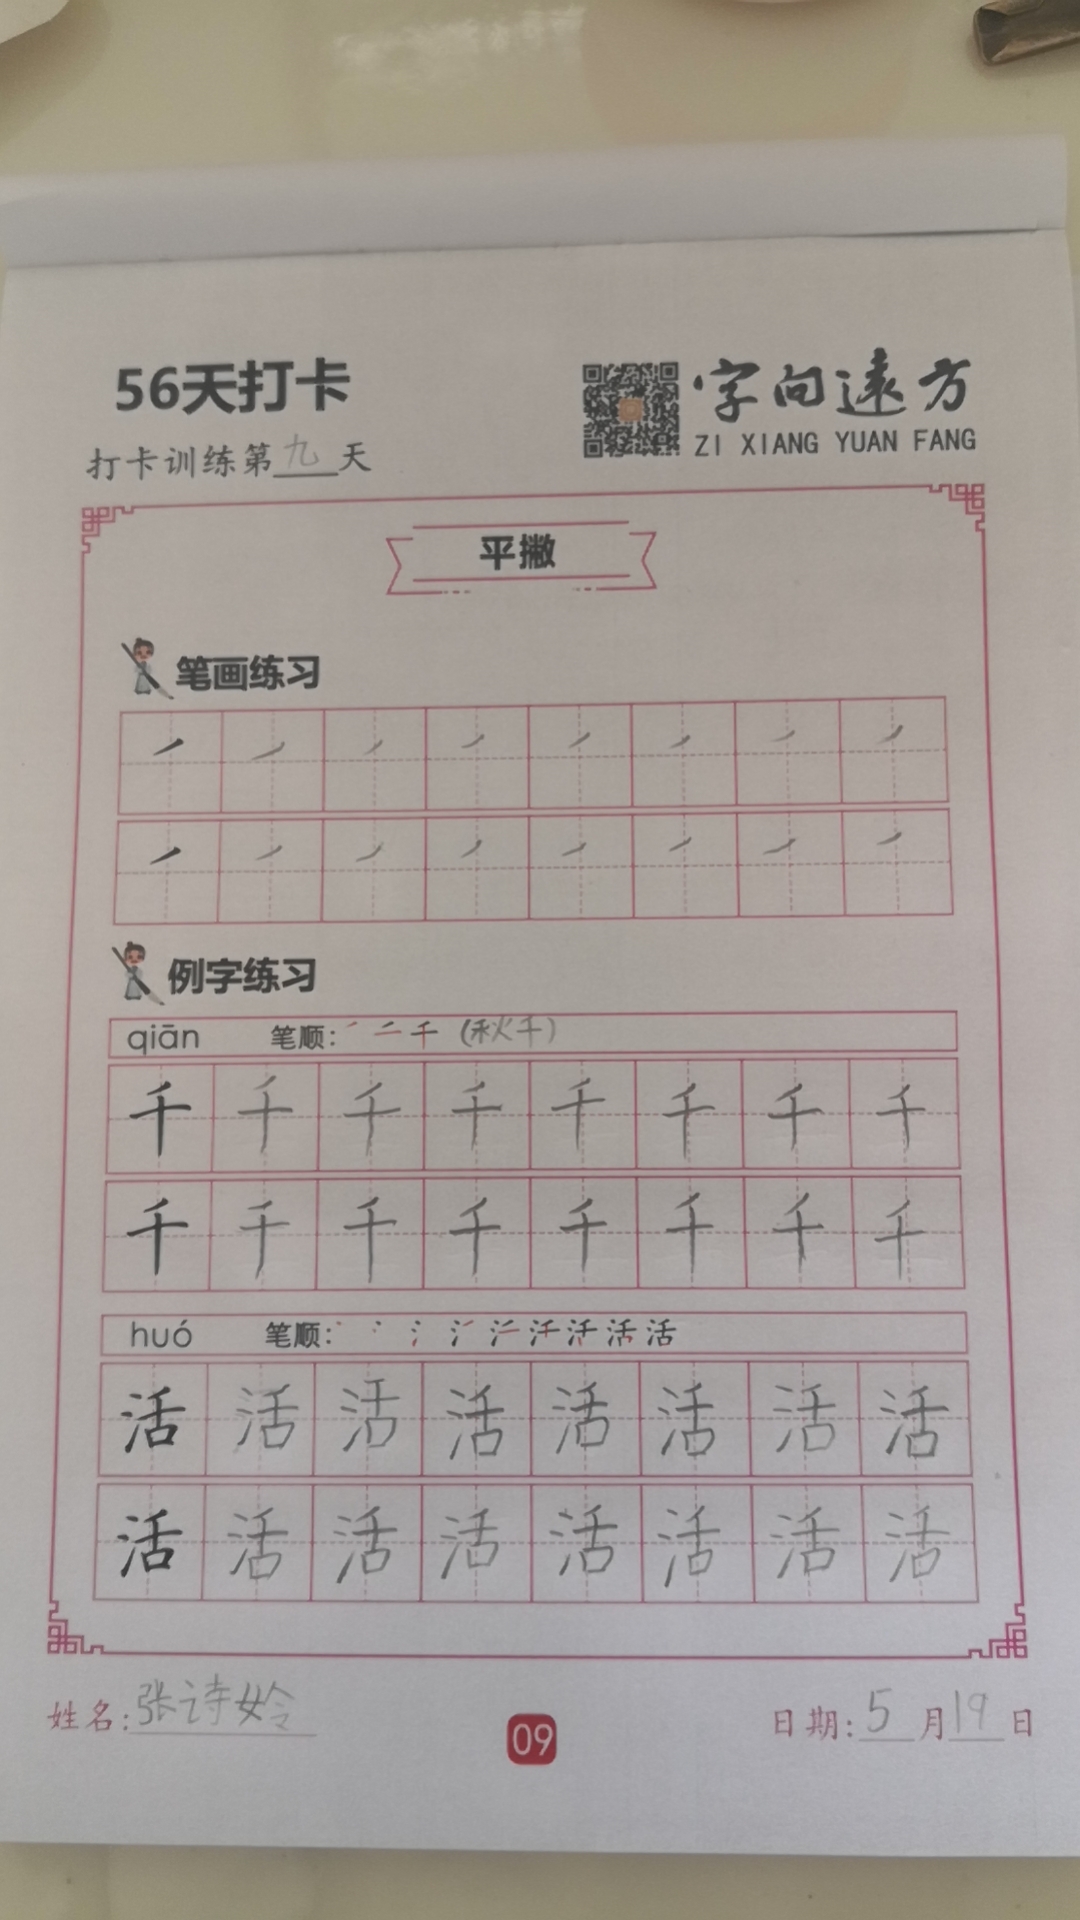 56天打卡
字向远方
ZI XIANG YUAN FANG
打卡训练第九天
平撇
笔画练习
㇒ ㇒ ㇒ ㇒ ㇒ ㇒ ㇒ ㇒
㇒ ㇒ ㇒ ㇒ ㇒ ㇒ ㇒ ㇒
例字练习
qiān 笔顺: 千 (秋千)
千 千 千 千 千 千 千 千
千 千 千 千 千 千 千 千
huó 笔顺: 活
活 活 活 活 活 活 活 活
活 活 活 活 活 活 活 活
姓名:张诗姈
09
日期:5月19日